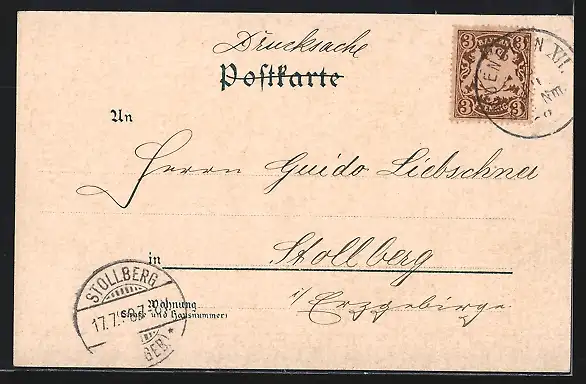 Drucksache
Postkarte
3 3
3 3
XII.
Nm.
An
Herrn Guido Liebschner
in Stollberg
i/ Erzgebirge
Wohnung
(Straße und Hausnummer)
STOLLBERG
17.7.